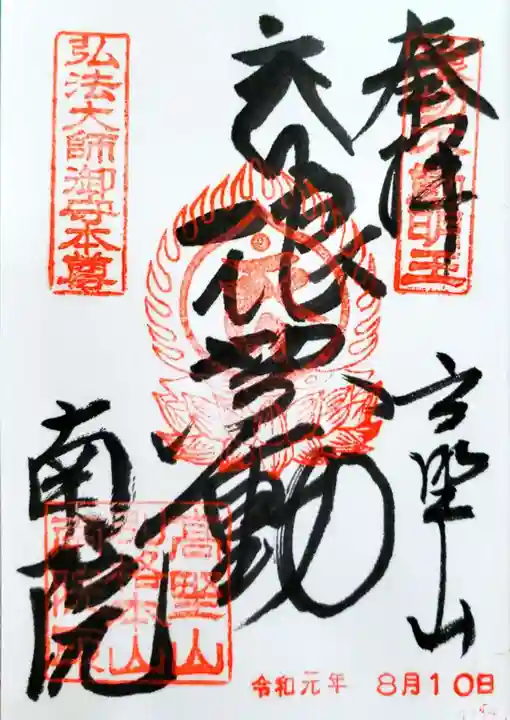 奉拝
高野山
浪切不動
南院
弘法大師御守本尊
高野山
別格本山
令和元年 8月10日